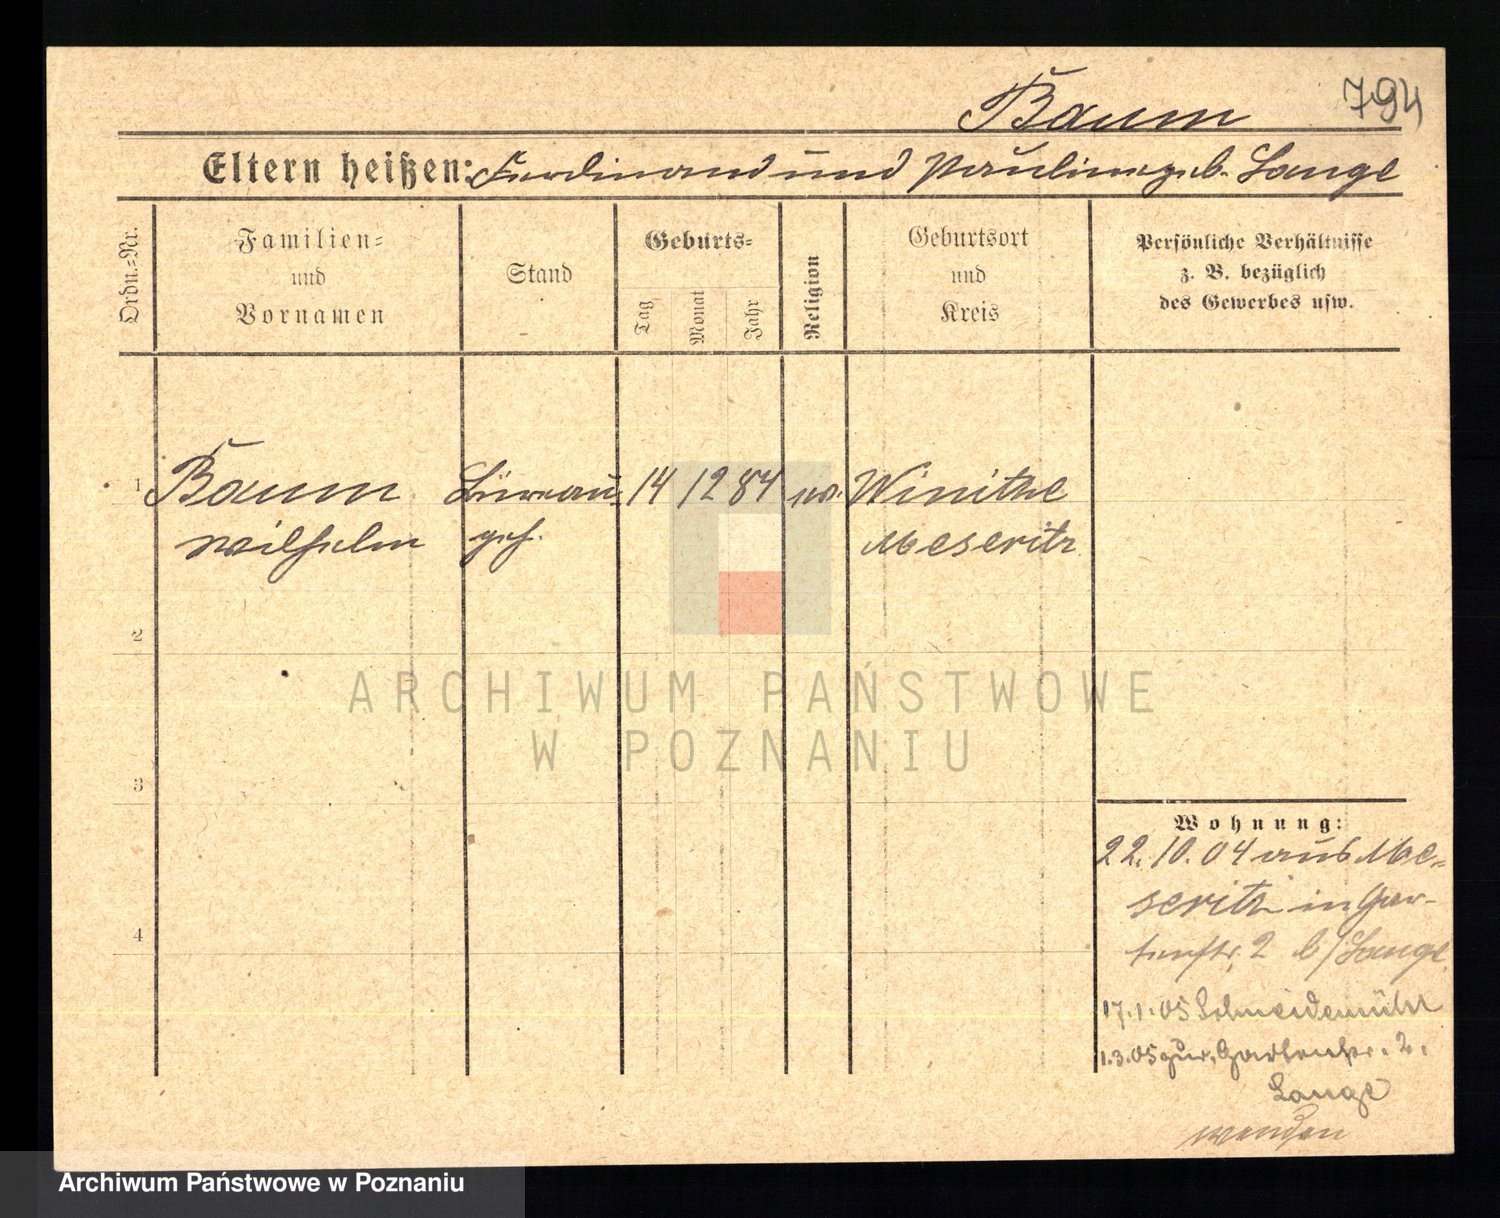 794
Baum
Eltern heißen: Ferdinand und Pauline geb. Lange
Ordn.-Nr.
Familien- und Vornamen
Stand
Geburts-
Tag
Monat
Jahr
Religion
Geburtsort und Kreis
Persönliche Verhältnisse
z. B. bezüglich
des Gewerbes usw.
1 Baum Büreau- 14 12 84 ev. Winitze
Wilhelm geh. Meseritz
2
3
4
Wohnung:
22. 10. 04 aus Me-
seritz in Gar-
tenstr. 2 b/Lange
17.1.05 Schneidemühl
1.3.05 zur. Gartenstr. 2.
Lange
wenden
ARCHIWUM PAŃSTWOWE
W POZNANIU
Archiwum Państwowe w Poznaniu